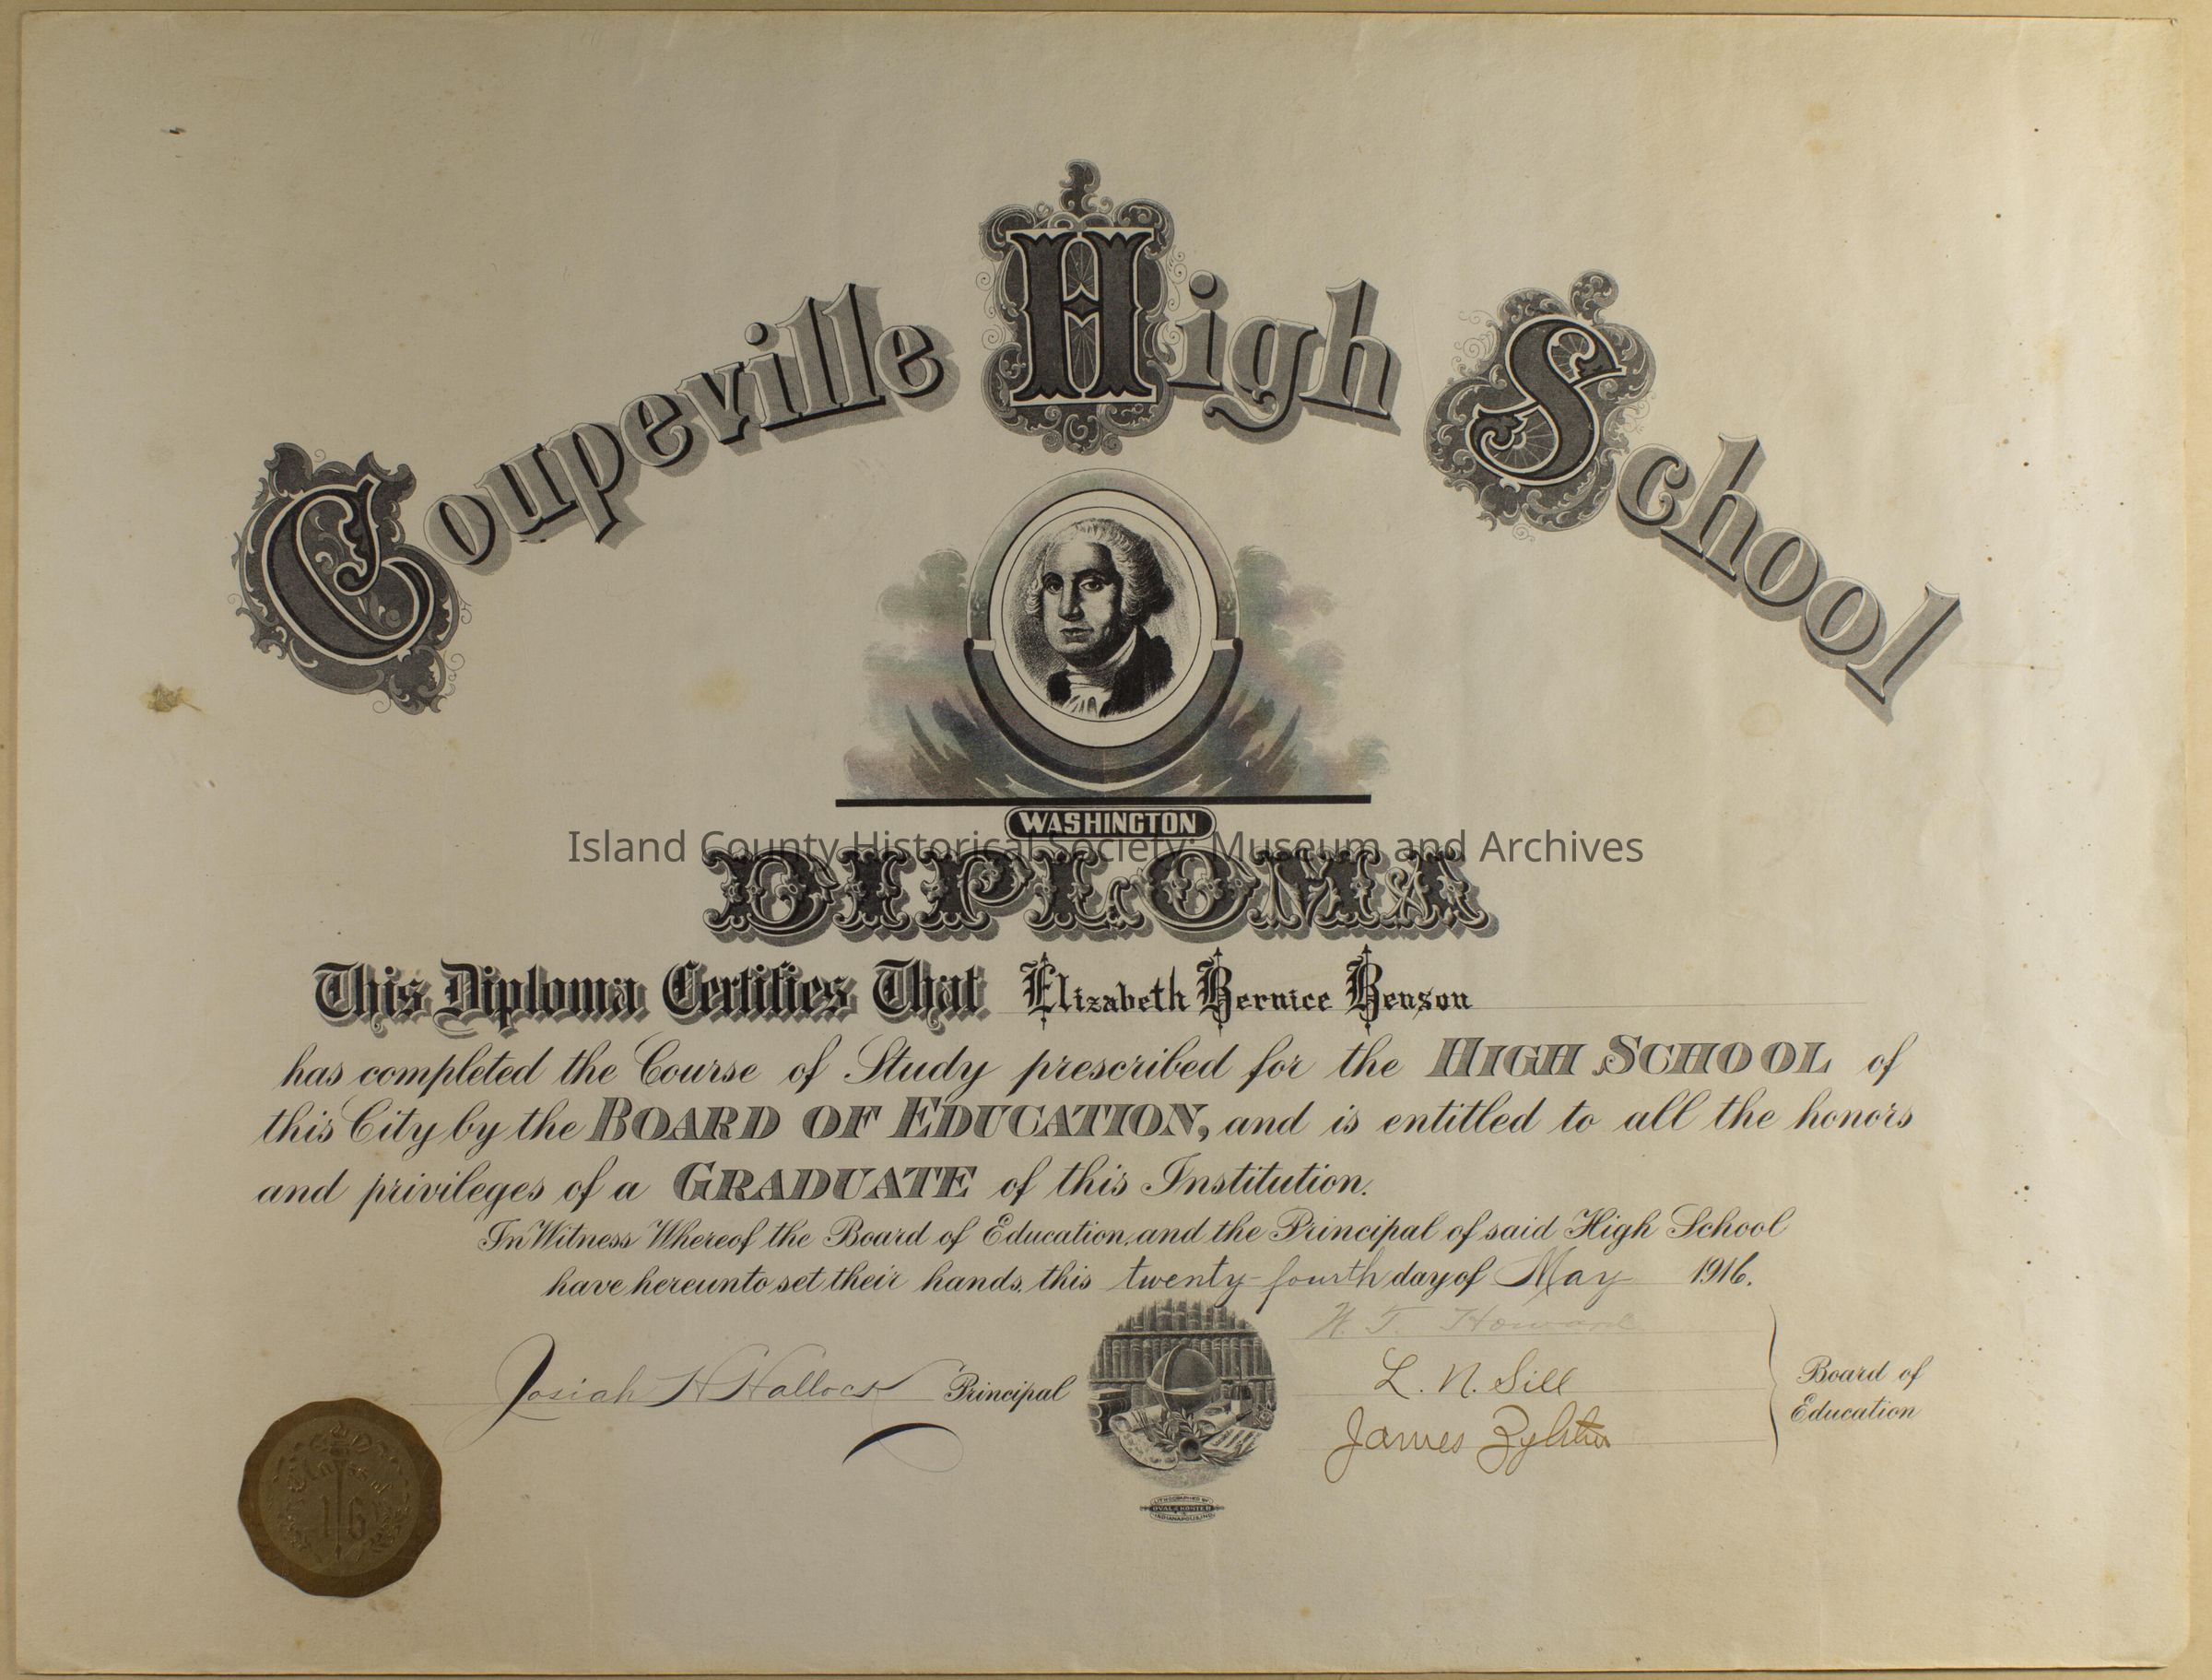 Coupeville High School
WASHINGTON
Island County Historical Society: Museum and Archives
DIPLOMA
This Diploma Certifies That Elizabeth Bernice Benson
has completed the Course of Study prescribed for the HIGH SCHOOL of
this City by the BOARD OF EDUCATION, and is entitled to all the honors
and privileges of a GRADUATE of this Institution.
In Witness Whereof the Board of Education, and the Principal of said High School
have hereunto set their hands, this twenty-fourth day of May 1916.
W. T. Howard
Josiah H Hallock Principal
L. N. Sill
James Zylstra
Board of
Education
16
LITHOGRAPHED BY
OVAL & KOSTER
INDIANAPOLIS, IND.